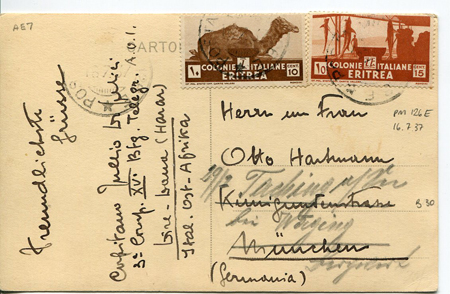 AE7
CARTO
COLONIE ITALIANE
ERITREA
10 CENT 10
COLONIE ITALIANE
ERITREA
15 CENT 15
POS
PM 126 E
16.7.37
B 30
Freundlichste
Grüsse
Capitano Julio
3a Comp. XVI Btg. Telegr. A.O.I.
(Harar)
Ital. Ost-Afrika
Herrn und Frau
Otto Hartmann
19/7
Kunigundenstrasse
bei
München
(Germania)